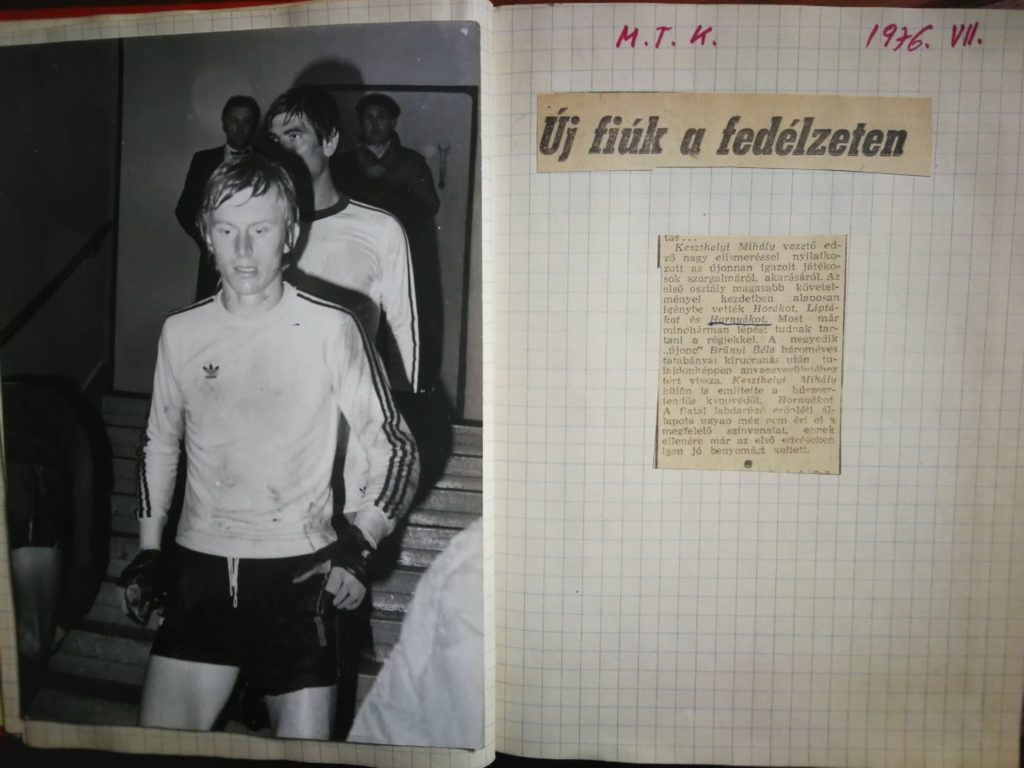 M. T. K. 1976. VII.
Új fiúk a fedélzeten
tás...
Keszthelyi Mihály vezető ed-
ző nagy elismeréssel nyilatko-
zott az újonnan igazolt játéko-
sok szorgalmáról, akarásáról. Az
első osztály magasabb követel-
ményei kezdetben alaposan
igénybe vették Horákot, Liptá-
kot és Hornyákot. Most már
mindhárman lépést tudnak tar-
tani a régiekkel. A negyedik
„újonc" Brünyi Béla hároméves
tatabányai kiruccanás után tu-
lajdonképpen anyaegyesületéhez
tért vissza. Keszthelyi Mihály
külön is említette a húszesz-
tendős kapuvédőt, Hornyákot.
A fiatal labdarúgó erőnléti ál-
lapota ugyan még nem éri el a
megfelelő színvonalat, ennek
ellenére már az első edzéseken
igen jó benyomást keltett.